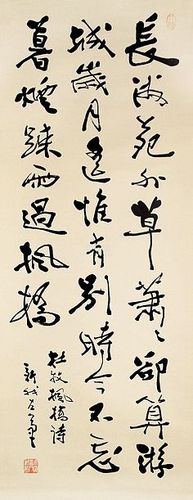 長洲苑外草蕭々卻算游
城歲月遙惟有別時今不忘
暮煙疎雨過楓橋
杜牧楓橋詩
新我左筆